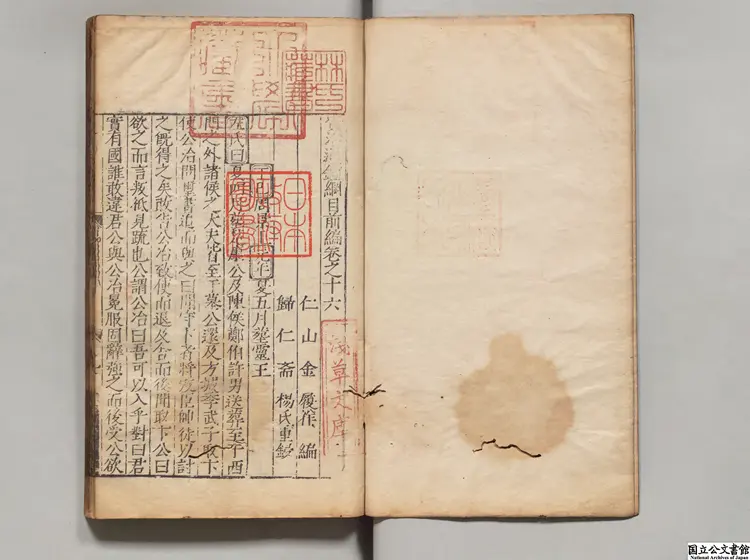 綱目前編卷之十六
仁山金履祥編
歸仁斋楊氏重鋟
周景王元年夏五月葬靈王
左氏曰夏四月葬楚康公及陳侯鄭伯許男送葬至于西
門之外諸侯之大夫皆至于墓公還及方城季武子取卞
使公冶問璽書追而與之曰聞守卞者將叛臣帥徒以討
之既得之矣敢告公冶致使而退及舍而後聞取卞公曰
欲之而言叛祇見疏也公謂公冶曰吾可以入乎對曰君
實有國誰敢違君公與公冶冕服固辭強之而後受公欲
淺草文庫
日本政府圖書
国立公文書館
National Archives of Japan